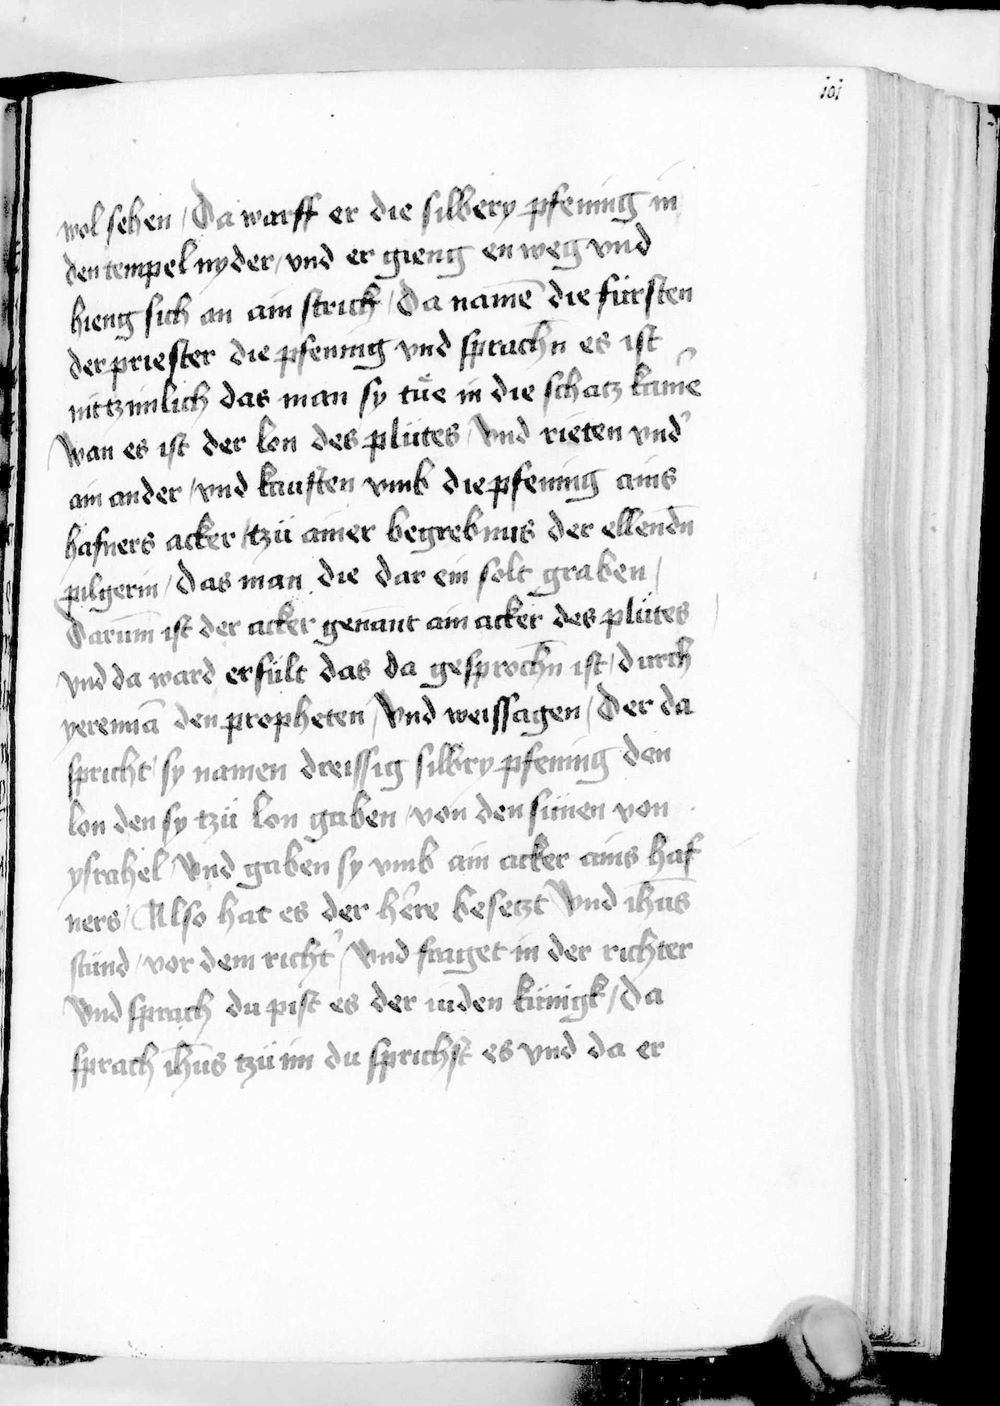 101
wol sehen / Da warff er die silbery pfening in
den tempel nyder / vnd er gieng en weg vnd
hieng sich an ain strick / Da namē die fürsten
der priester die pfening vnd sprachn̄ es ist
nit tzimlich das man sy tuͤe in die schatz kamē
Wan es ist der lon des plütes / Vnd rieten vnd'
ain ander / vnd kauften vmb die pfening ains
hafners acker / tzü ainer begrebnus der ellendn̄
pilgerin / das man die dar ein solt graben /
Darūm ist der acker genānt ain acker des plütes
vnd da ward erfült das da gesprochn̄ ist / durch
yeremiā den propheten / Vnd weissagen / Der da
spricht / sy namen dreissig silbry pfening den
lon den sy tzü lon gaben / von den sünen von
ysrahel / Vnd gaben sy vmb ain acker ains haf
ners / Also hat es der h'ere besetzt Vnd ih̄us
stünd / vor dem richt' / Vnd fraget in der richter
Vnd sprach du pist es der iuden künigk / Da
sprach ih̄us tzü im du sprichst es vnd da er